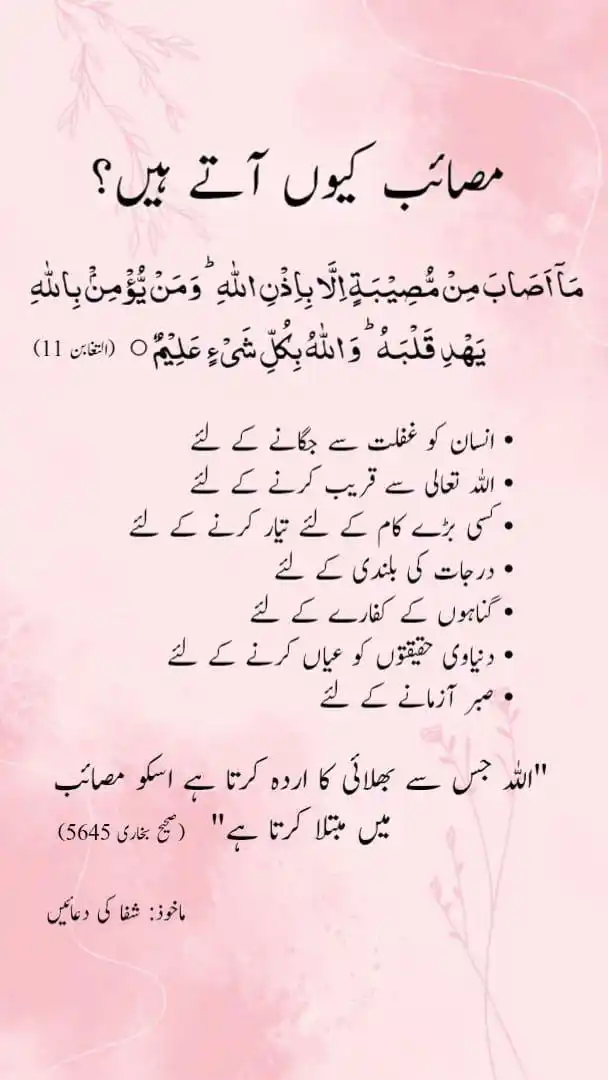 مصائب کیوں آتے ہیں؟
مَآ اَصَابَ مِنْ مُّصِیْبَةٍ اِلَّا بِاِذْنِ اللّٰهِ ؕ وَمَنْ یُّؤْمِنْۢ بِاللّٰهِ
یَهْدِ قَلْبَهٗ ؕ وَاللّٰهُ بِكُلِّ شَیْءٍ عَلِیْمٌ ○ (التغابن 11)
• انسان کو غفلت سے جگانے کے لئے
• اللہ تعالی سے قریب کرنے کے لئے
• کسی بڑے کام کے لئے تیار کرنے کے لئے
• درجات کی بلندی کے لئے
• گناہوں کے کفارے کے لئے
• دنیاوی حقیقتوں کو عیاں کرنے کے لئے
• صبر آزمانے کے لئے
"اللہ جس سے بھلائی کا اردہ کرتا ہے اسکو مصائب
میں مبتلا کرتا ہے" (صحیح بخاری 5645)
ماخوذ: شفا کی دعائیں